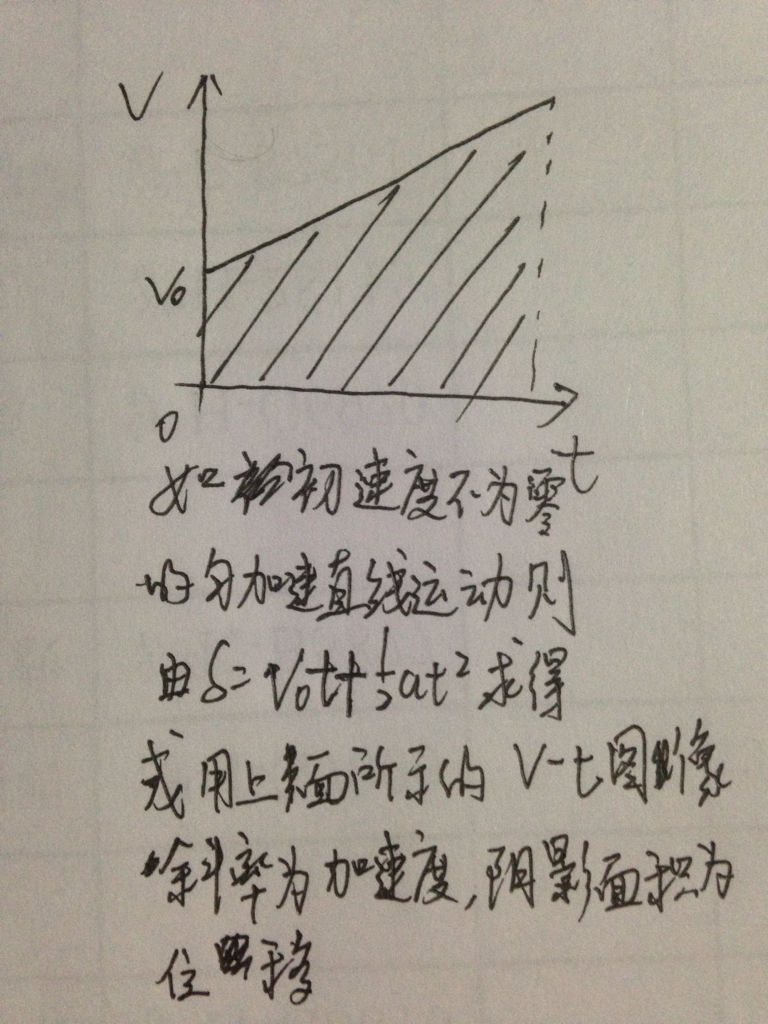 V
V₀
0
t
如初速度不为零
的匀加速直线运动则
由S=V₀t+½at²求得
或用上面所示的V-t图像
斜率为加速度,阴影面积为
位移